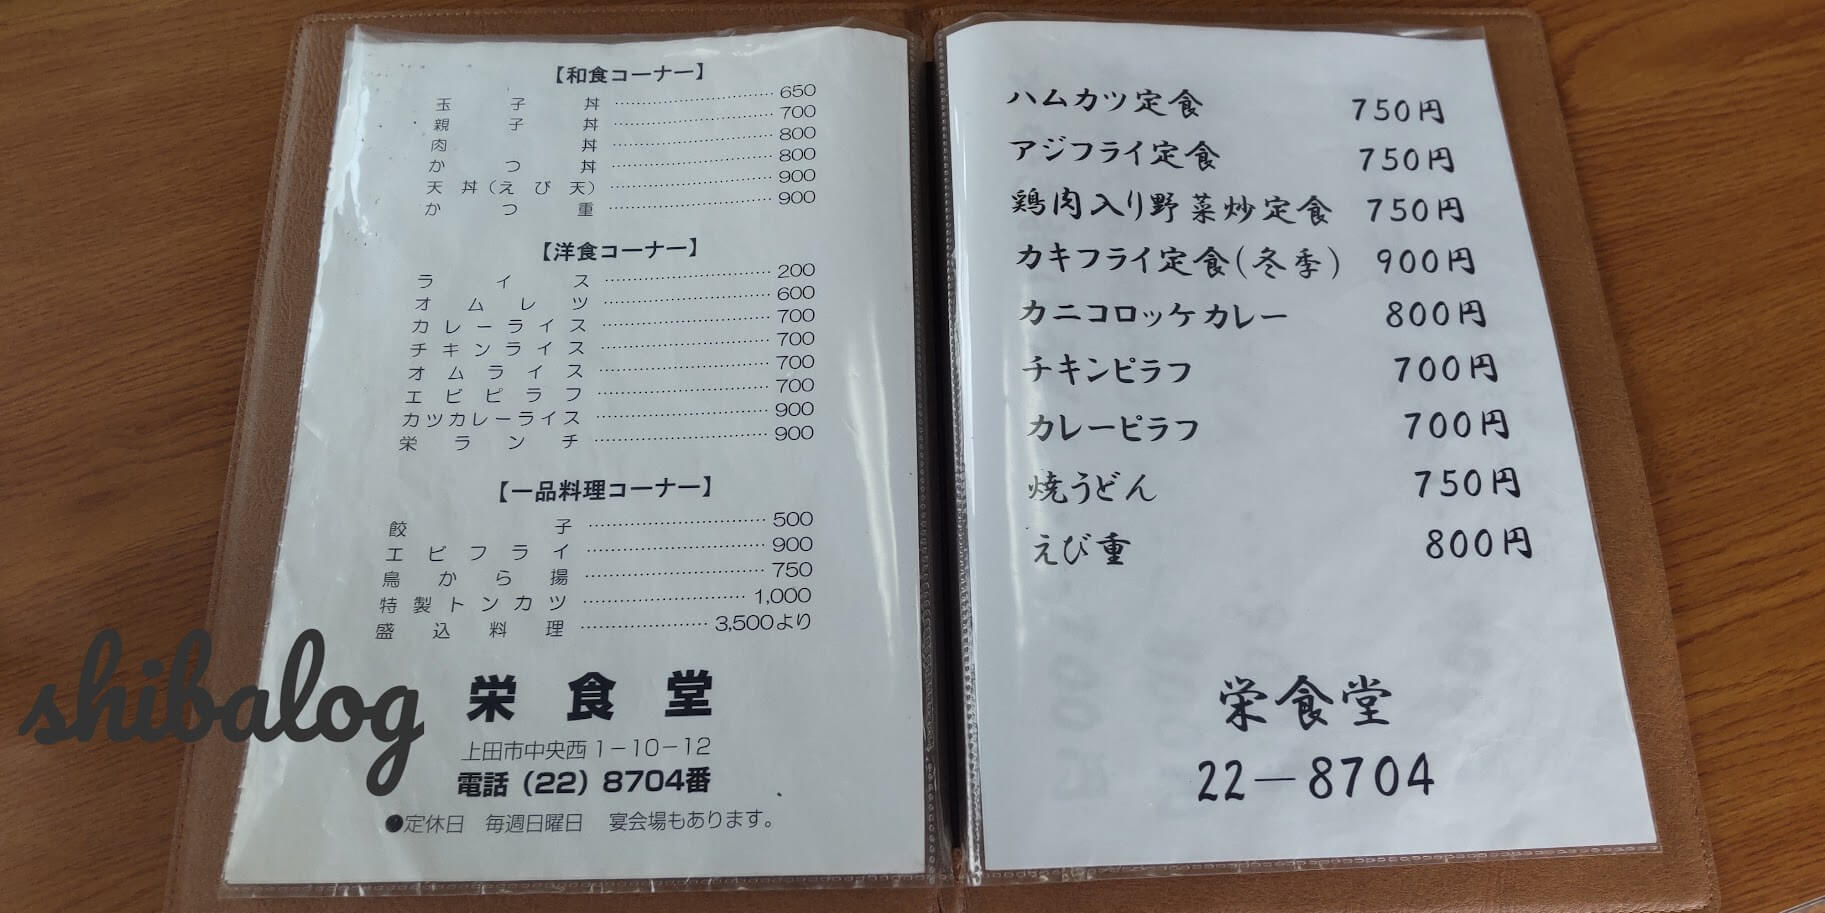 【和食コーナー】
玉子丼 650
親子丼 700
肉丼 800
かつ丼 800
天丼(えび天) 900
かつ重 900
【洋食コーナー】
ライス 200
オムレツ 600
カレーライス 700
チキンライス 700
オムライス 700
エビピラフ 700
カツカレーライス 900
栄ランチ 900
【一品料理コーナー】
餃子 500
エビフライ 900
鳥から揚 750
特製トンカツ 1,000
盛込料理 3,500より
栄食堂
上田市中央西1-10-12
電話(22)8704番
●定休日 毎週日曜日 宴会場もあります。
ハムカツ定食 750円
アジフライ定食 750円
鶏肉入り野菜炒定食 750円
カキフライ定食(冬季) 900円
カニコロッケカレー 800円
チキンピラフ 700円
カレーピラフ 700円
焼うどん 750円
えび重 800円
栄食堂
22-8704
shibalog